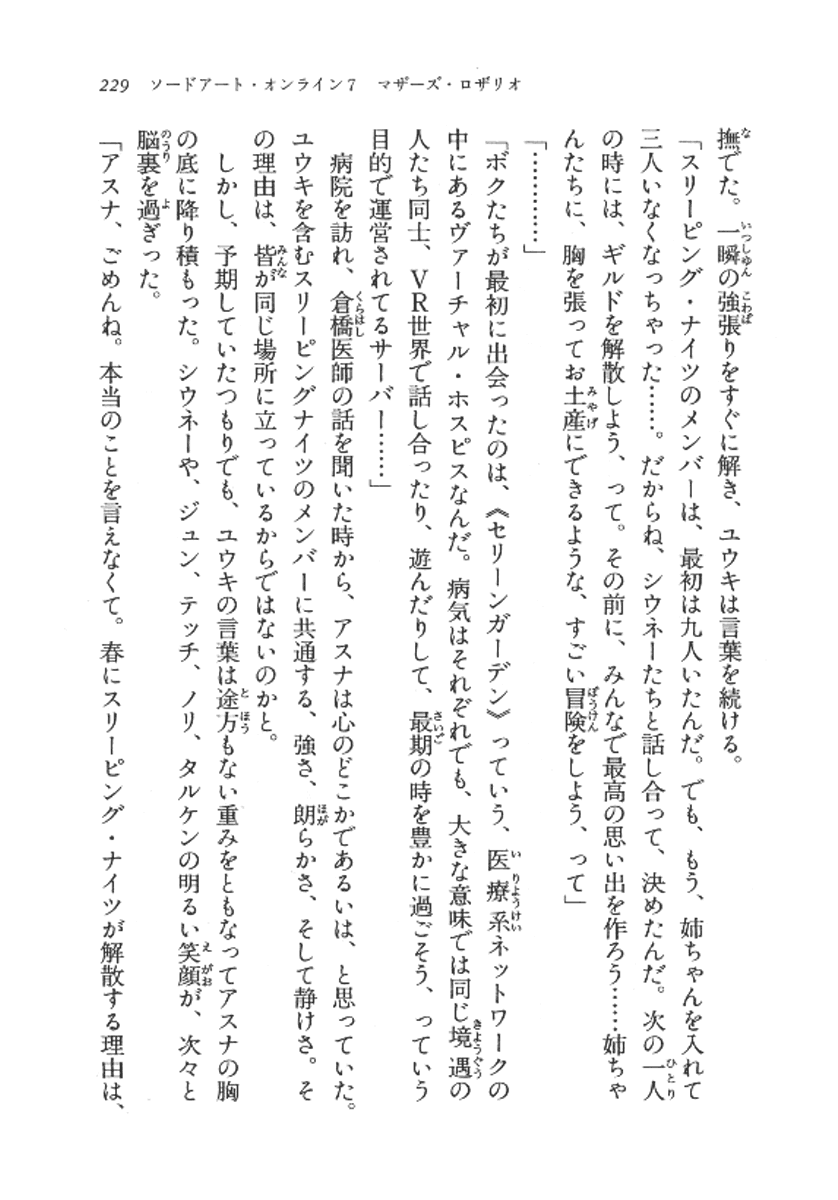 229 ソードアート・オンライン7 マザーズ・ロザリオ
撫でた。一瞬の強張りをすぐに解き、ユウキは言葉を続ける。
「スリーピング・ナイツのメンバーは、最初は九人いたんだ。でも、もう、姉ちゃんを入れて
三人いなくなっちゃった……。だからね、シウネーたちと話し合って、決めたんだ。次の一人
の時には、ギルドを解散しよう、って。その前に、みんなで最高の思い出を作ろう……姉ちゃ
んたちに、胸を張ってお土産にできるような、すごい冒険をしよう、って」
「…………」
「ボクたちが最初に出会ったのは、《セリーンガーデン》っていう、医療系ネットワークの
中にあるヴァーチャル・ホスピスなんだ。病気はそれぞれでも、大きな意味では同じ境遇の
人たち同士、ＶＲ世界で話し合ったり、遊んだりして、最期の時を豊かに過ごそう、っていう
目的で運営されてるサーバー……」
病院を訪れ、倉橋医師の話を聞いた時から、アスナは心のどこかであるいは、と思っていた。
ユウキを含むスリーピングナイツのメンバーに共通する、強さ、朗らかさ、そして静けさ。そ
の理由は、皆が同じ場所に立っているからではないのかと。
しかし、予期していたつもりでも、ユウキの言葉は途方もない重みをともなってアスナの胸
の底に降り積もった。シウネーや、ジュン、テッチ、ノリ、タルケンの明るい笑顔が、次々と
脳裏を過ぎった。
「アスナ、ごめんね。本当のことを言えなくて。春にスリーピング・ナイツが解散する理由は、